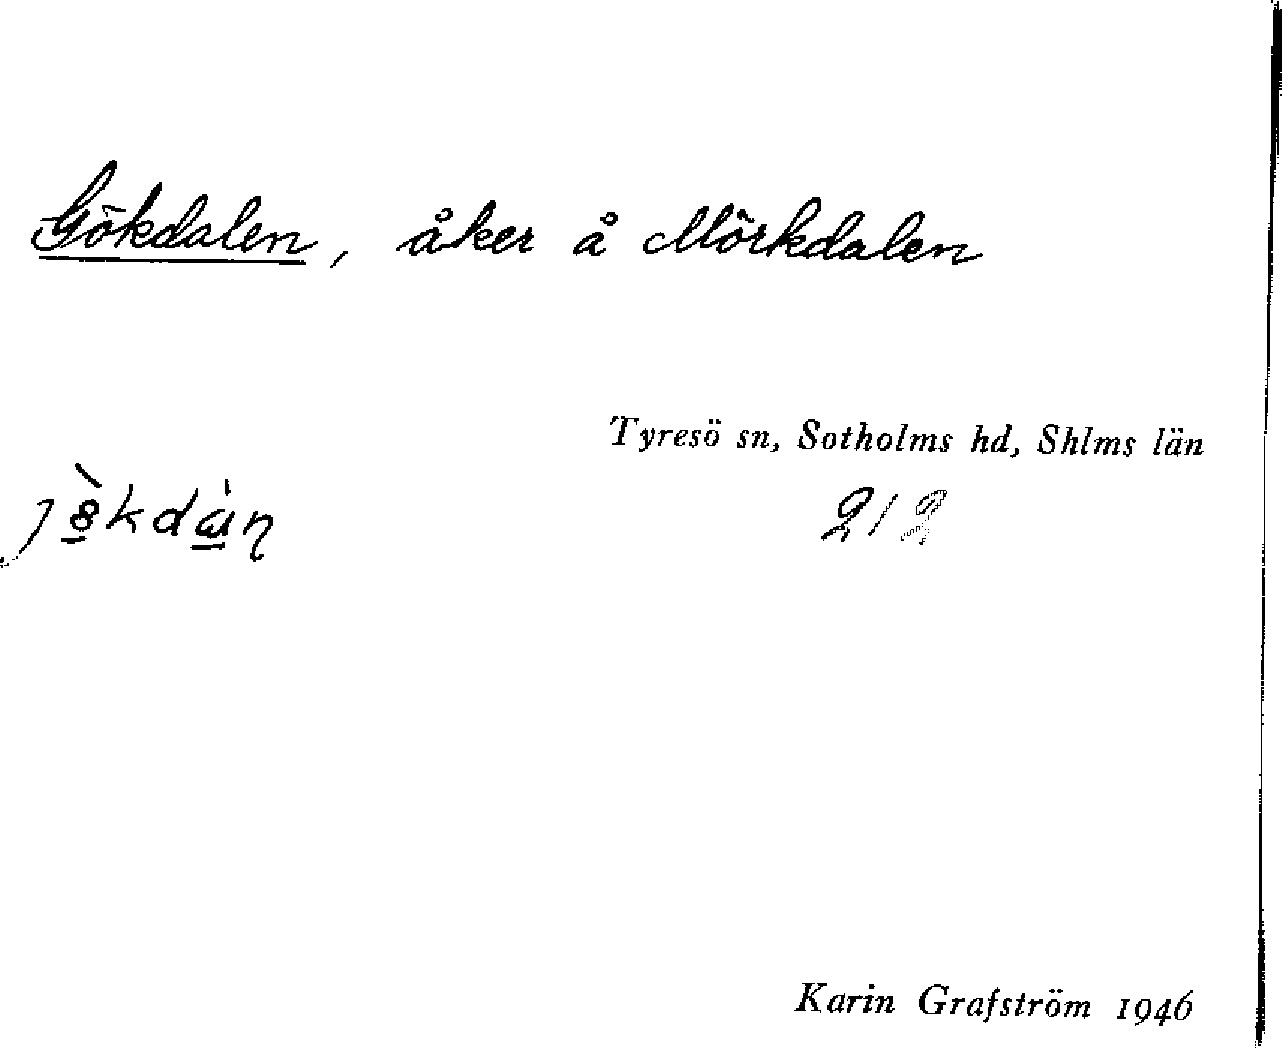 Gökdalen, åker å Mörkdalen
Tyresö sn, Sotholms hd, Shlms län
212
Karin Grafström 1946